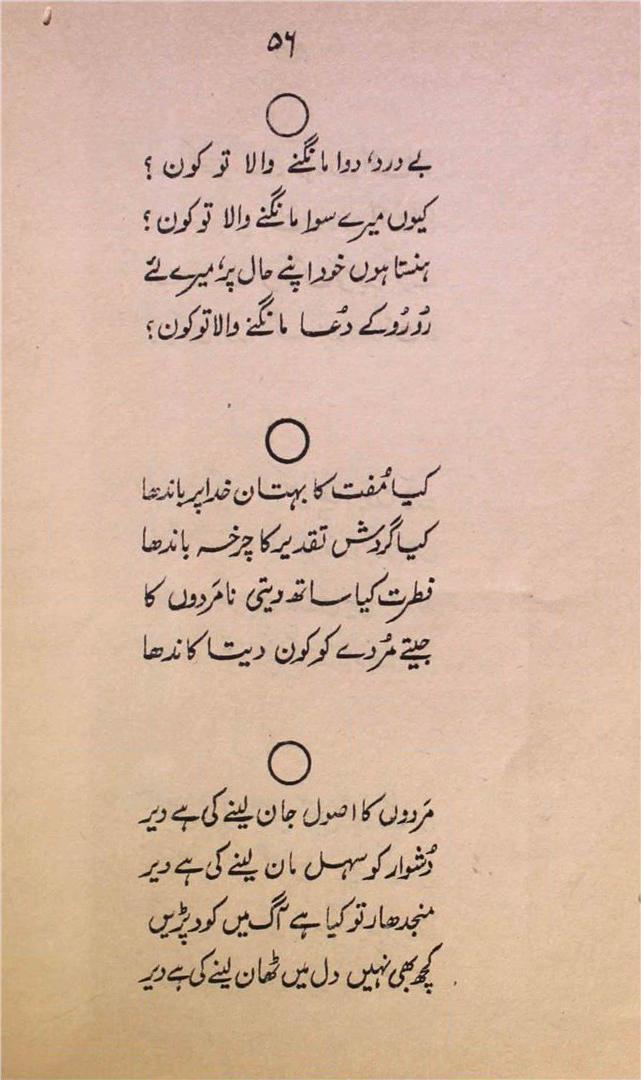 ۵۶
بے درد، دوا مانگنے والا تو کون ؟
کیوں میرے سوا مانگنے والا تو کون ؟
ہنستا ہوں خود اپنے حال پر، میرے لئے
رُو رُو کے دُعا مانگنے والا تو کون ؟
کیا مُفت کا بہتان خدا پر باندھا
کیا گردش تقدیر کا چرخہ باندھا
فطرت کیا ساتھ دیتی نامَردوں کا
جیتے مُردے کو کون دیتا کاندھا
مَردوں کا اصول جان لینے کی ہے دیر
دُشوار کو سہل مان لینے کی ہے دیر
منجدھار تو کیا ہے آگ میں کود پڑیں
کچھ بھی نہیں دل میں ٹھان لینے کی ہے دیر